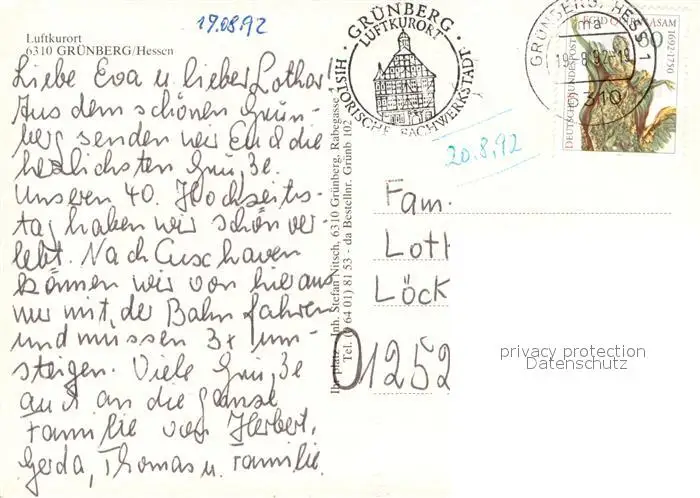 19.08.92
Luftkurort
6310 GRÜNBERG/Hessen
Liebe Ewa u. lieber Lothar!
Aus dem schönen Grün-
berg senden wir Euch die
herzlichsten Grüße.
Unseren 40. Hochzeits-
tag haben wir schön ver-
lebt. Nach Cuxhaven
können wir von hier aus
nur mit der Bahn fahren
und müssen 3x um-
steigen. Viele Grüße
auch an die ganze
Familie von Herbert,
Gerda, Thomas u. Familie.
Inh. Stefan Nitsch, 6310 Grünberg, Rabegasse
Tel. (0 64 01) 81 53 - da Bestellnr. Grünb 102
GRÜNBERG
LUFTKURORT
HISTORISCHE FACHWERKSTADT
GRÜNBERG, HESS 1
ma
19.-8.92-19
6310
DEUTSCHE BUNDESPOST
EGID QUIRIN ASAM
1692-1750
60
20.8.92
Fam.
Loth
Löck
01252
privacy protection
Datenschutz